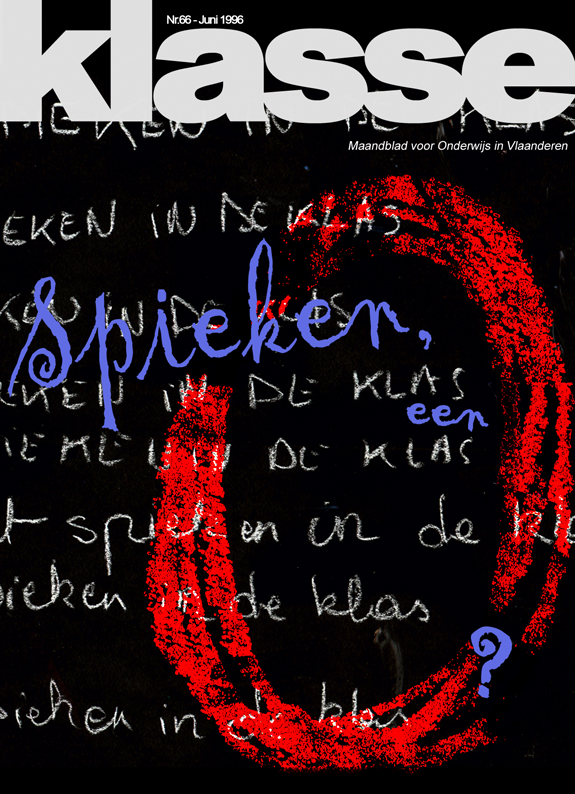 Nr.66 - Juni 1996
klasse
Maandblad voor Onderwijs in Vlaanderen
IN DE KLAS
EKEN IN DE KLAS
spieken,
KEN IN DE KLAS
EKEN IN DE KLAS
een
IEKEN IN DE KLAS
t spieken in de kla
0
pieken in de klas
?
pieken in de klas